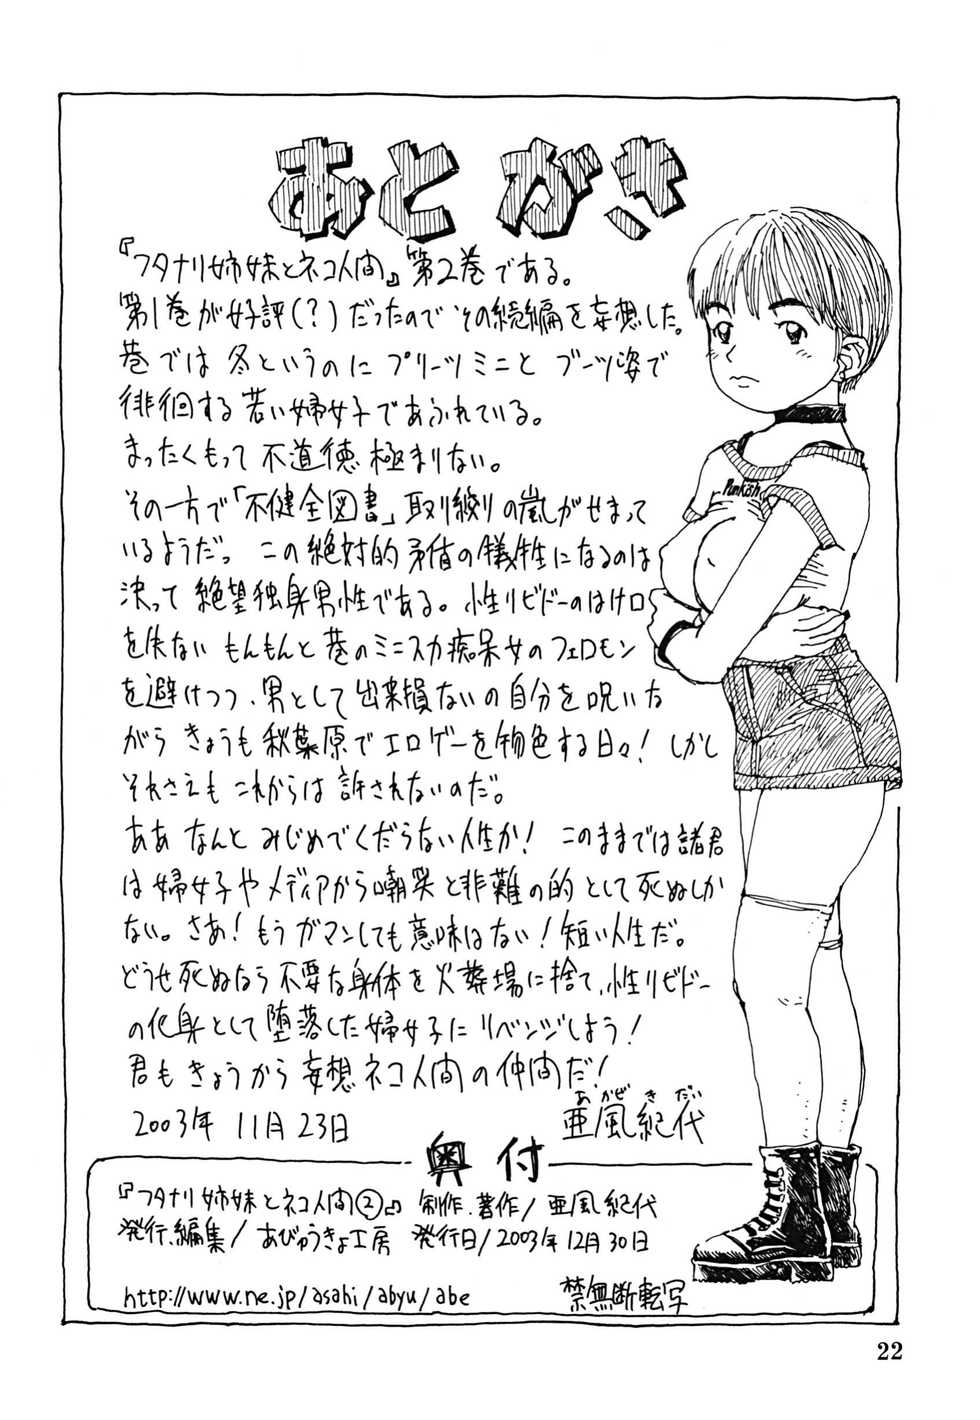 あとがき
『フタナリ姉妹とネコ人間』第2巻である。
第1巻が好評(?)だったので その続編を妄想した。
巷では 冬というのに プリーツミニと ブーツ姿で
徘徊する若い婦女子であふれている。
まったくもって 不道徳 極まりない。
その一方で「不健全図書」取り絞りの嵐がせまって
いるようだ。 この絶対的矛盾の犠牲になるのは
決って 絶望独身男性である。性リビドーのはけ口
を失ない もんもんと 巷のミニスカ痴呆女のフェロモン
を避けつつ、男として出来損ないの自分を呪いな
がら きょうも 秋葉原でエロゲーを物色する日々! しかし
それさえも これからは 許されないのだ。
ああ なんと みじめで くだらない人生か! このままでは諸君
は婦女子やメディアから嘲笑と非難の的として死ぬしか
ない。さあ! もうガマンしても意味はない! 短い人生だ。
どうせ死ぬなら不要な身体を火葬場に捨て、性リビドー
の化身として堕落した婦女子にリベンジしよう!
君もきょうから妄想ネコ人間の仲間だ!
2003年 11月 23日
あかぜ きだい
亜風紀代
Punkish
奥付
『フタナリ姉妹とネコ人間②』 制作.著作/ 亜風紀代
発行.編集/ あびゅうきょ工房 発行日/2003年12月30日
http://www.ne.jp/asahi/abyu/abe 禁無断転写
22